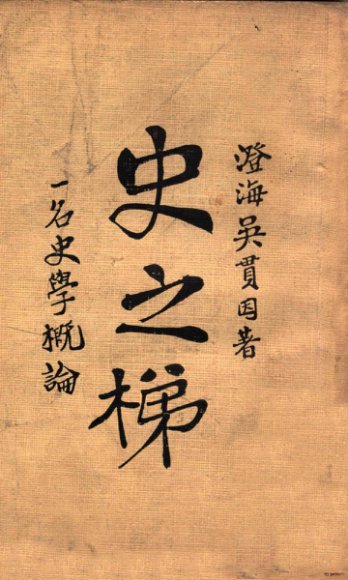 澄海吳貫因著
史之梯
一名史學概論